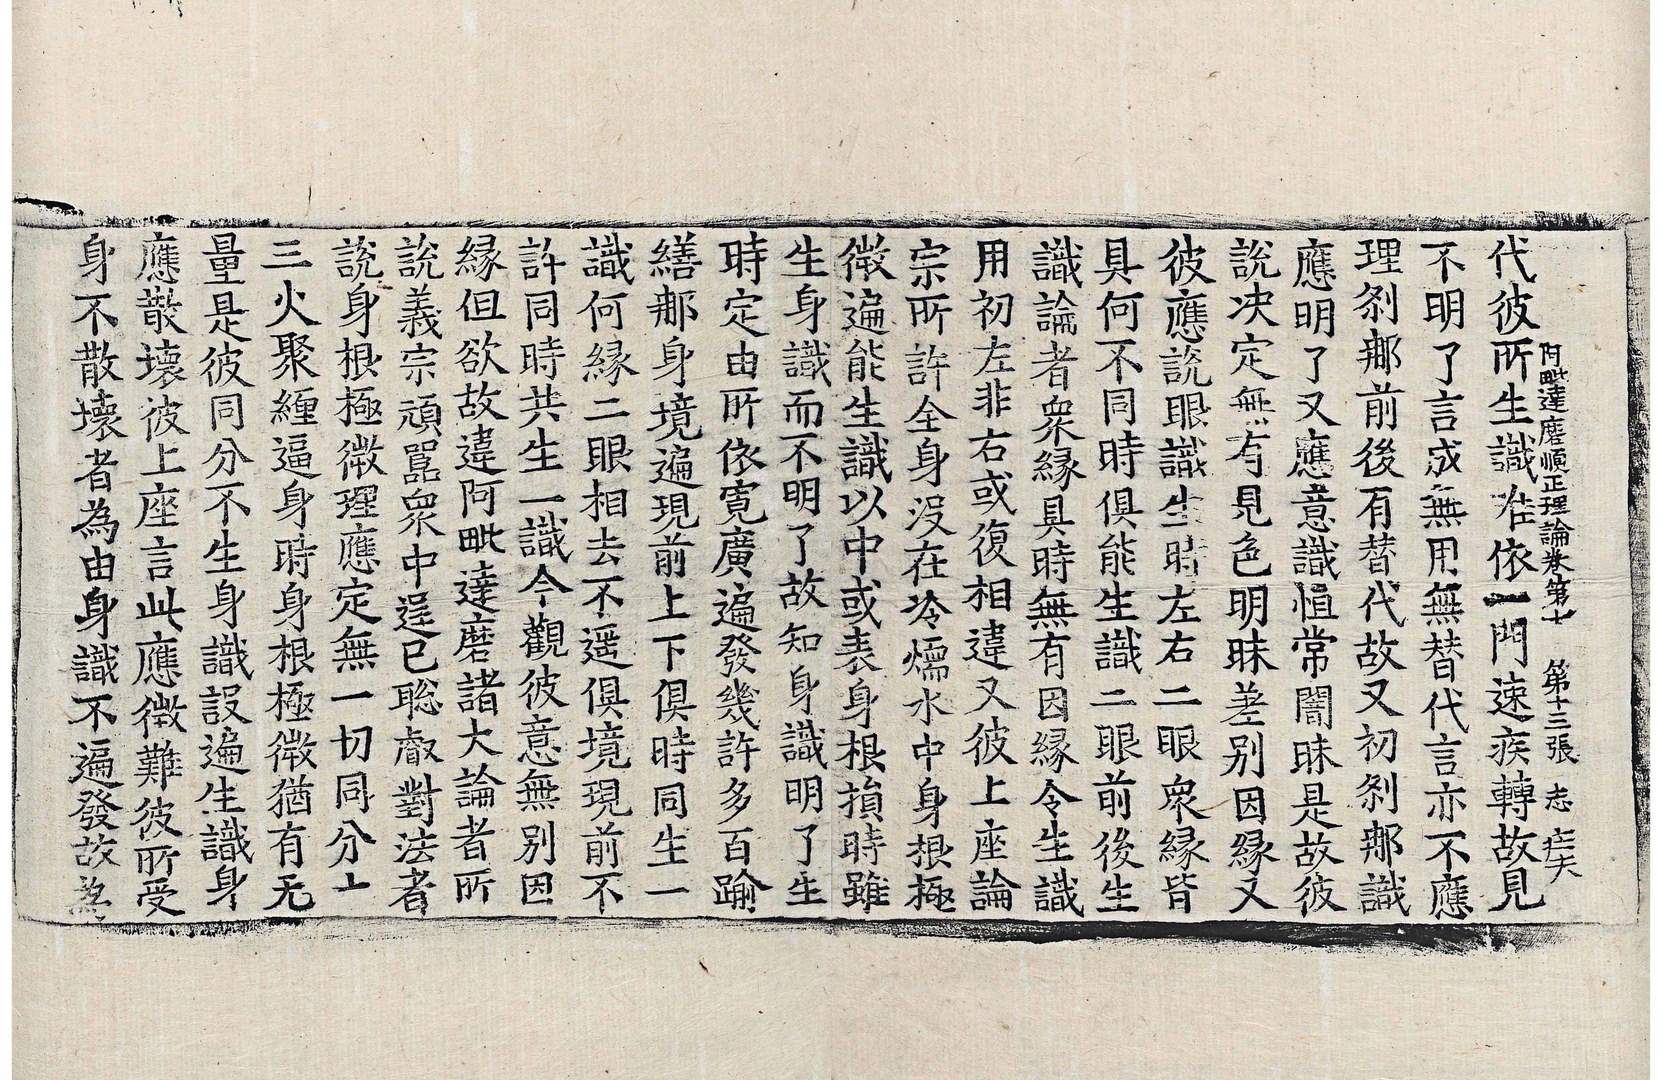 阿毗達磨順正理論卷第七　第十三張　志
代彼所生識唯依一門速疾轉故見
不明了言成無用無替代言亦不應
理剎郍前後有替代故又初剎郍識
應明了又應意識恒常闇昧是故彼
說决定無有見色明昧差别因縁又
彼應説眼識生時左右二眼衆縁皆
具何不同時俱能生識二眼前後生
識論者衆縁具時無有因縁令生識
用初左非右或復相違又彼上座論
宗所許全身没在冷煗水中身根極
微遍能生識以中或表身根損時雖
生身識而不明了故知身識明了生
時定由所依寬廣遍發幾許多百踰
繕郍身境遍現前上下俱時同生一
識何縁二眼相去不遥俱境現前不
許同時共生一識今觀彼意無别因
縁但欲故違阿毗達磨諸大論者所
説義宗頑嚚衆中逞已聡叡對法者
説身根極微理應定無一切同分
三火聚纏逼身時身根極微猶有无
量是彼同分不生身識設遍生識身
應散壞彼上座言此應徵難彼所受
身不散壞者為由身識不遍發故為